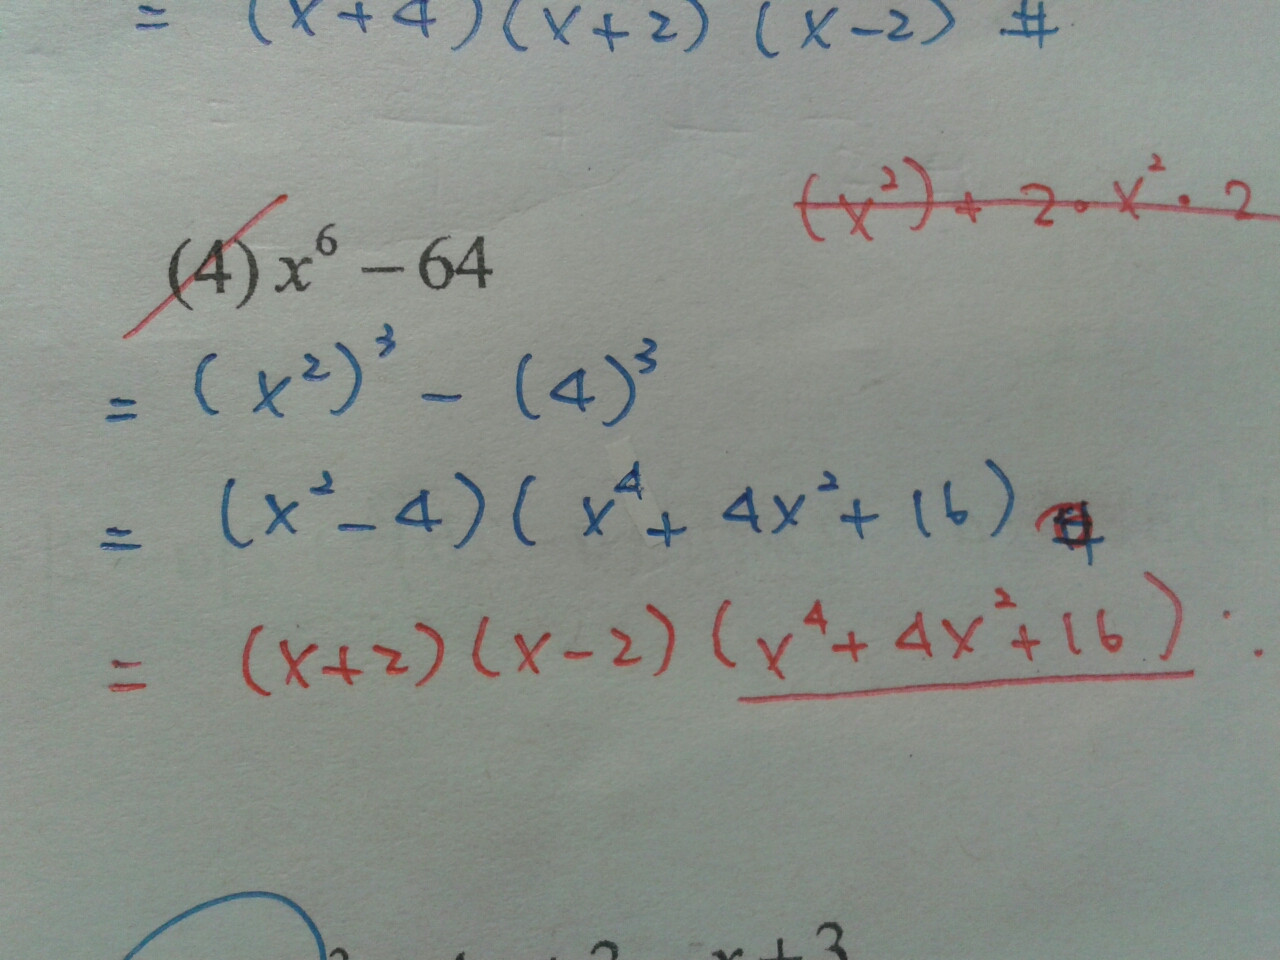 = (x+4)(x+2)(x-2) #
(x²) + 2·x²·2
(4) x⁶ − 64
= (x²)³ - (4)³
= (x²-4)(x⁴+4x²+16) #
= (x+2)(x-2)(x⁴+4x²+16)
x+3